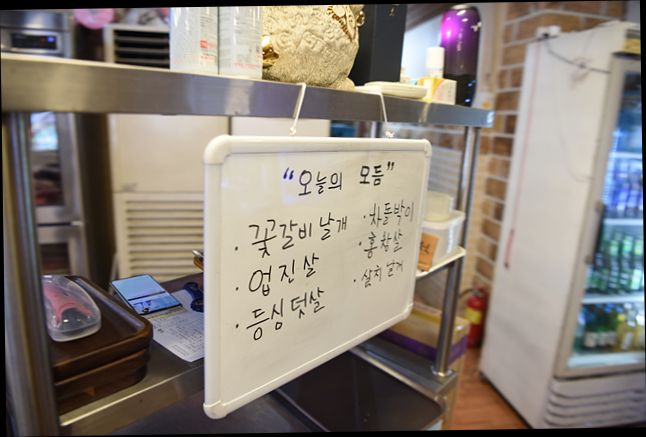 “오늘의 모듬”
· 꽃갈비 날개
· 업진살
· 등심덧살
· 차돌박이
· 홍창살
· 삼치 날개